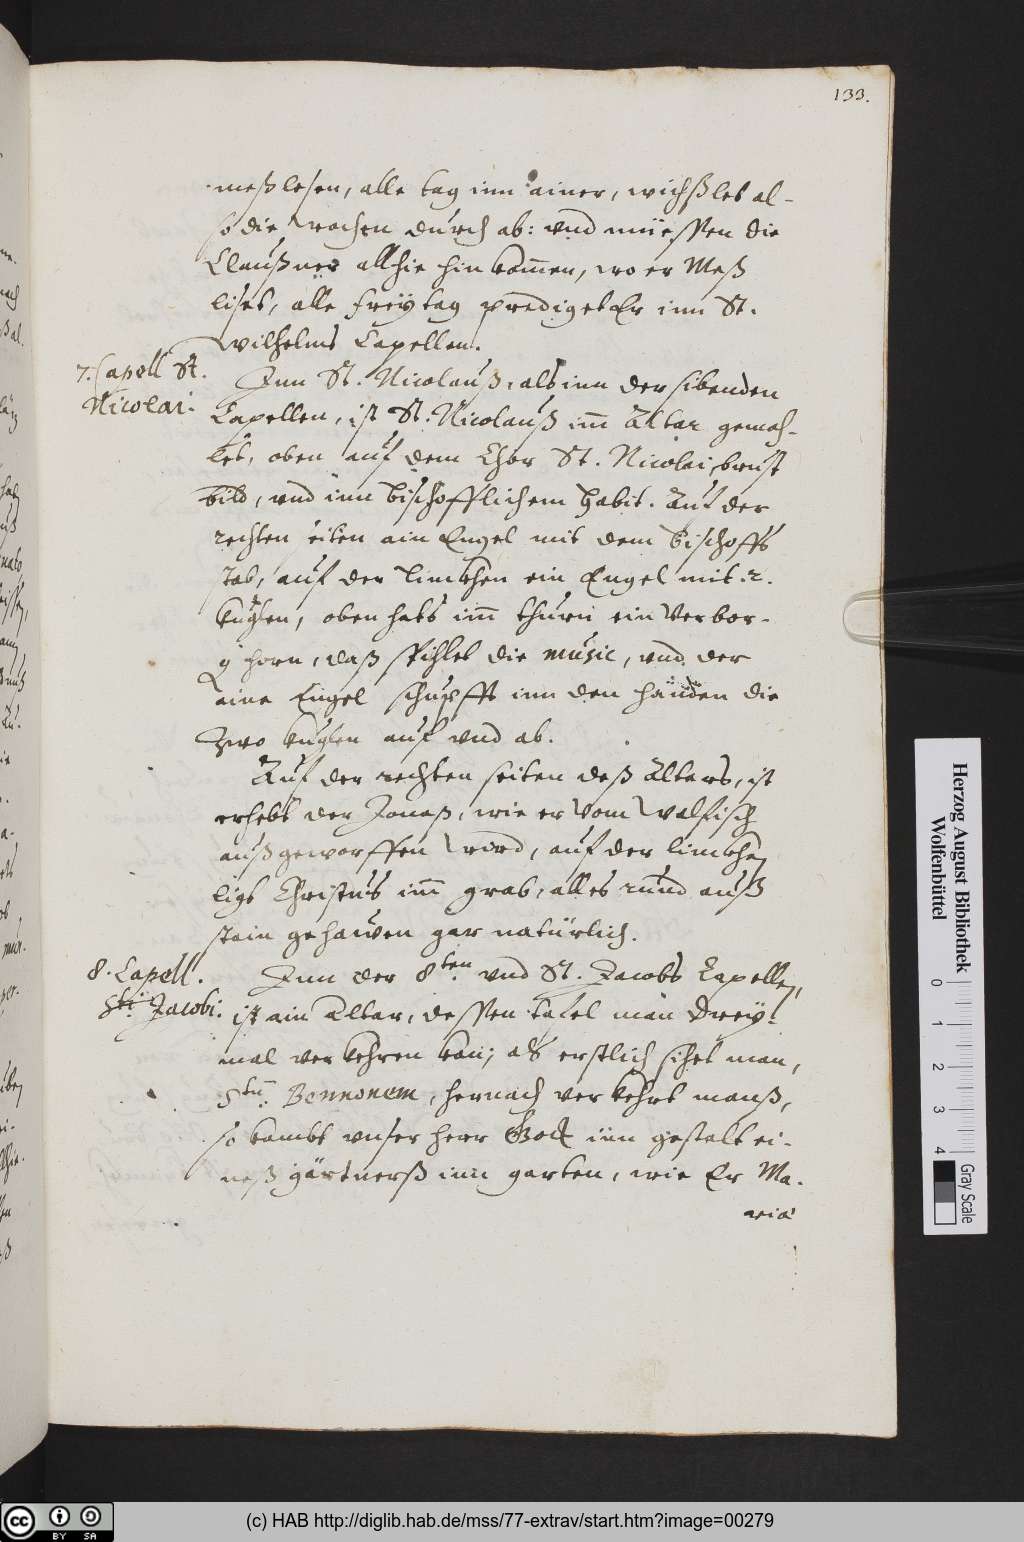 133.
meßlesen, alle tag inn ainer, wichßlet al-
so die wochen durch ab: vnd müessen die
Claußner allhie hin kom̄en, wo er Meß
liset, alle freÿtag prediget Er inn St.
Wilhelms Capellen.
7. Capell St.
Nicolai.
Inn St. Nicolauß, als inn der sibenden
Capellen, ist St. Nicolauß im̄ Altar gemah-
let, oben auf dem Chor St. Nicolai, brust
bild, vnd inn bischofflichem habit. Auf der
rechten seiten ain Engel mit dem Bischoffs
stab, auf der linckhen ein Engel mit .2.
kuglen, oben hats im̄ thurn ein Verbor-
g horn, daß spihlet die music, vnd der
aine Engel schupfft inn den händen die
Zwo kuglen auf vnd ab.
Auf der rechten seiten deß Altars, ist
erhebt der Jonaß, wie er Vom Walfisch
außgeworffen Wird, auf der linckhen
ligt Christus im̄ grab, alles rund auß
stain gehawen gar natürlich.
8. Capell.
Sti Jacobi:
Inn der 8ten vnd St. Jacobs Capellen,
ist ain Altar, dessen tafel man dreÿ-
mal verkehren kan; als erstlich sihet man,
Stu Bennonem, hernach verkehrt manß,
so kombt vnser herr Gott inn gestalt ei-
neß gärtnerß inn garten, wie Er Ma-
ria
Herzog August Bibliothek
Wolfenbüttel
0 1 2 3 4
Gray Scale
cc BY SA
(c) HAB http://diglib.hab.de/mss/77-extrav/start.htm?image=00279